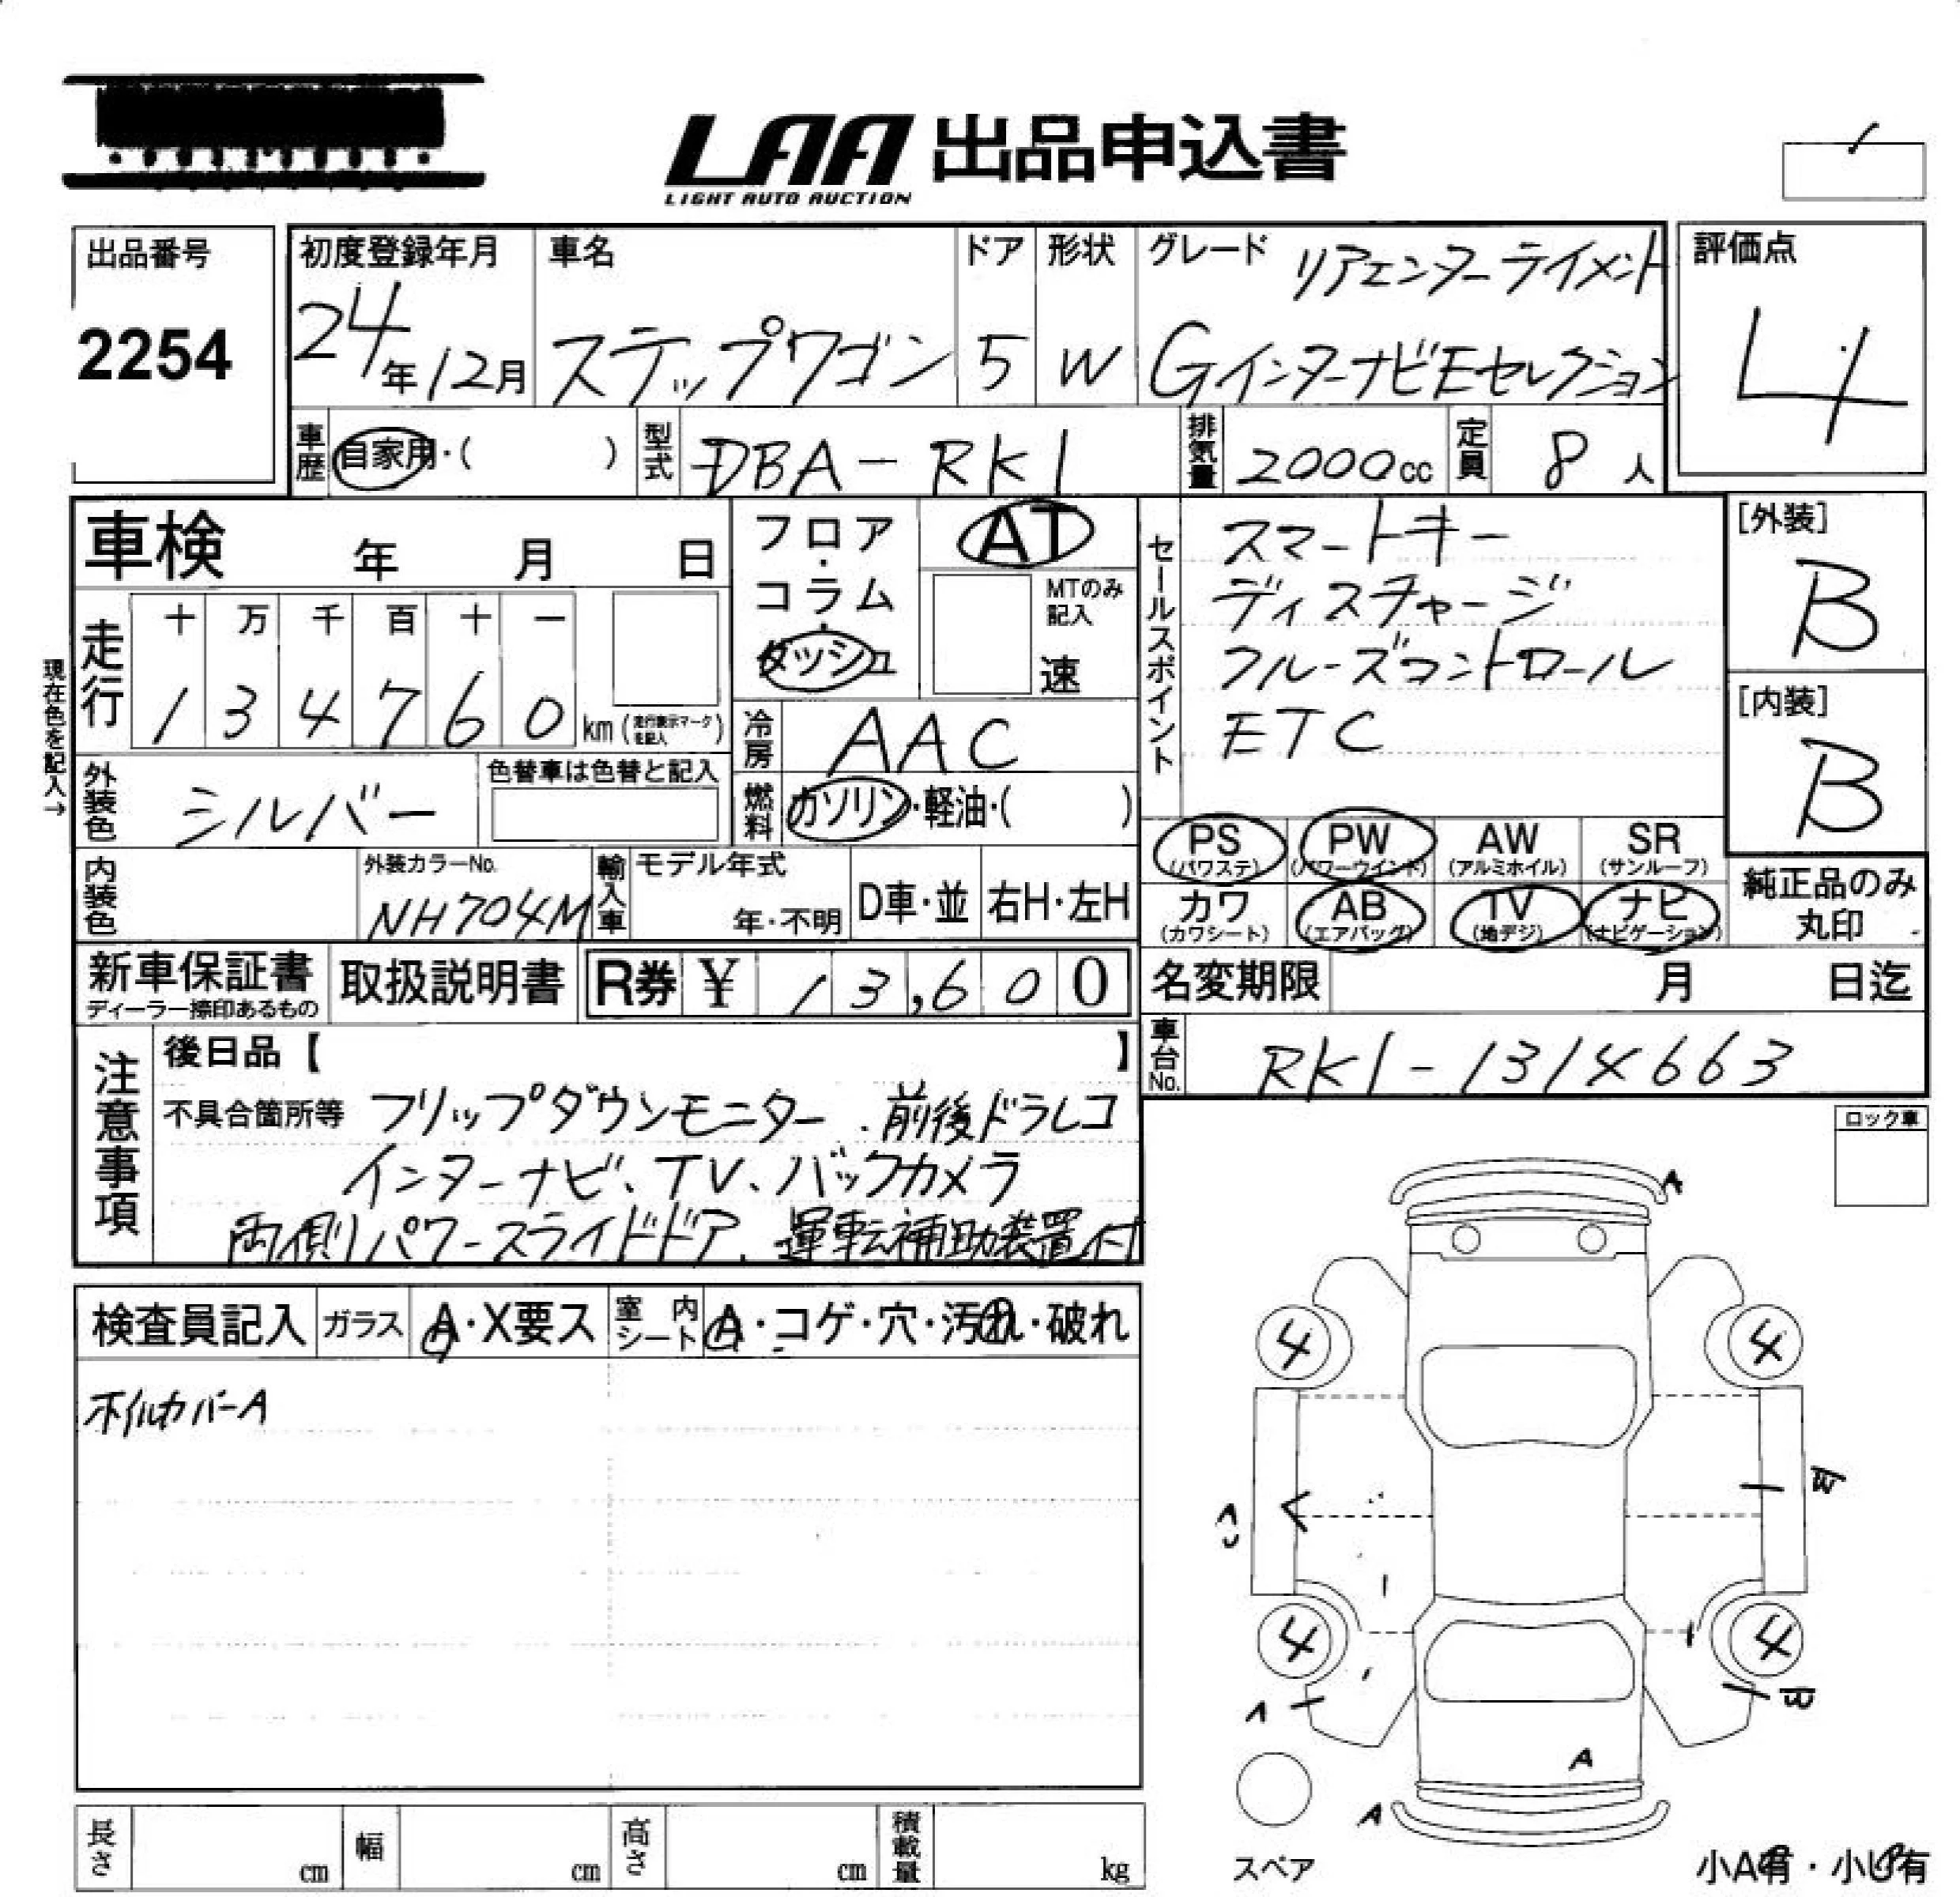 LAA 出品申込書
LIGHT AUTO AUCTION
出品番号
2254
初度登録年月
24年12月
車名
ステップワゴン
ドア
5
形状
W
グレード リアエンターテイメント
GインターナビEセレクション
評価点
4
車歴 自家用・( )
型式 DBA-RK1
排気量 2000cc
定員 8人
車検 年 月 日
フロア・コラム・ダッシュ
AT
MTのみ記入
速
セールスポイント
スマートキー
ディスチャージ
クルーズコントロール
ETC
[外装]
B
[内装]
B
現在色を記入→
走行
十 万 千 百 十 一
1 3 4 7 6 0 km (走行表示マークを記入)
冷房 AAC
外装色 シルバー
色替車は色替と記入
燃料 ガソリン・軽油・( )
PS (パワステ)
PW (パワーウインド)
AW (アルミホイル)
SR (サンルーフ)
カワ (カワシート)
AB (エアバッグ)
TV (地デジ)
ナビ (ナビゲーション)
純正品のみ
丸印
内装色
外装カラーNo.
NH704M
輸入車
モデル年式
年・不明
D車・並
右H・左H
新車保証書
ディーラー捺印あるもの
取扱説明書
R券 ¥ 13,600
名変期限 月 日迄
車台No. RK1-1314663
注意事項
後日品【 】
不具合箇所等 フリップダウンモニター、前後ドラレコ
インターナビ、TV、バックカメラ
両側パワースライドドア、運転補助装置付
ロック車
検査員記入
ガラス A・X要ス
室内シート A・コゲ・穴・汚れ・破れ
ホイルカバーA
A
4 4
4 4
A
A
スペア
小A有・小U有
長さ cm
幅 cm
高さ cm
積載量 kg